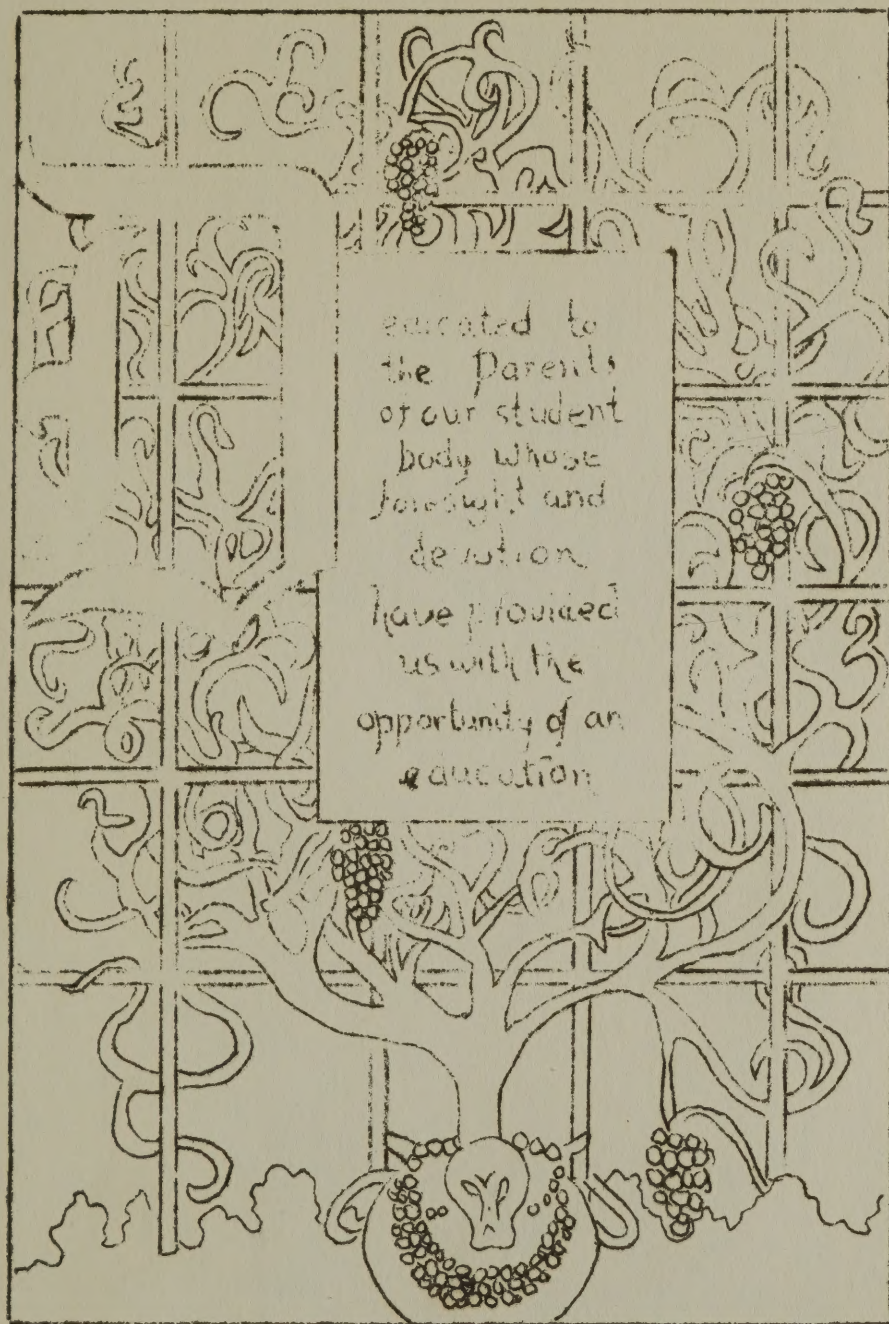 Dedicated to
the Parents
of our student
body whose
foresight and
devotion
have provided
us with the
opportunity of an
education